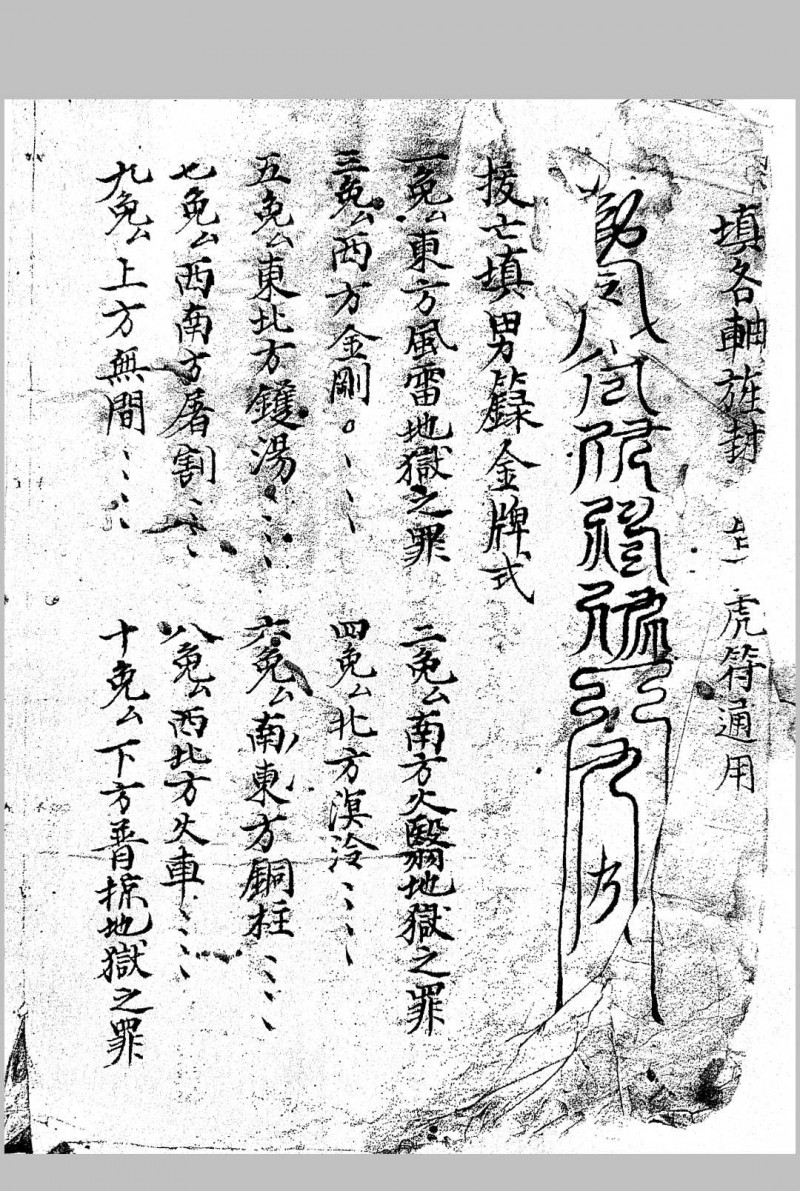 填各軸旌封 上一虎符通用
拔亡填男籙金牌式
一免厶東方風雷地獄之罪 二免厶南方火翳地獄之罪
三免厶西方金剛。、、、 四免厶北方溟泠、、、、
五免厶東北方鑊湯、、、、 六免厶南東方銅柱、、、、
七免厶西南方屠割、、、 八免厶西北方火車、、、、
九免厶上方無間、、、、 十免厶下方普掠地獄之罪